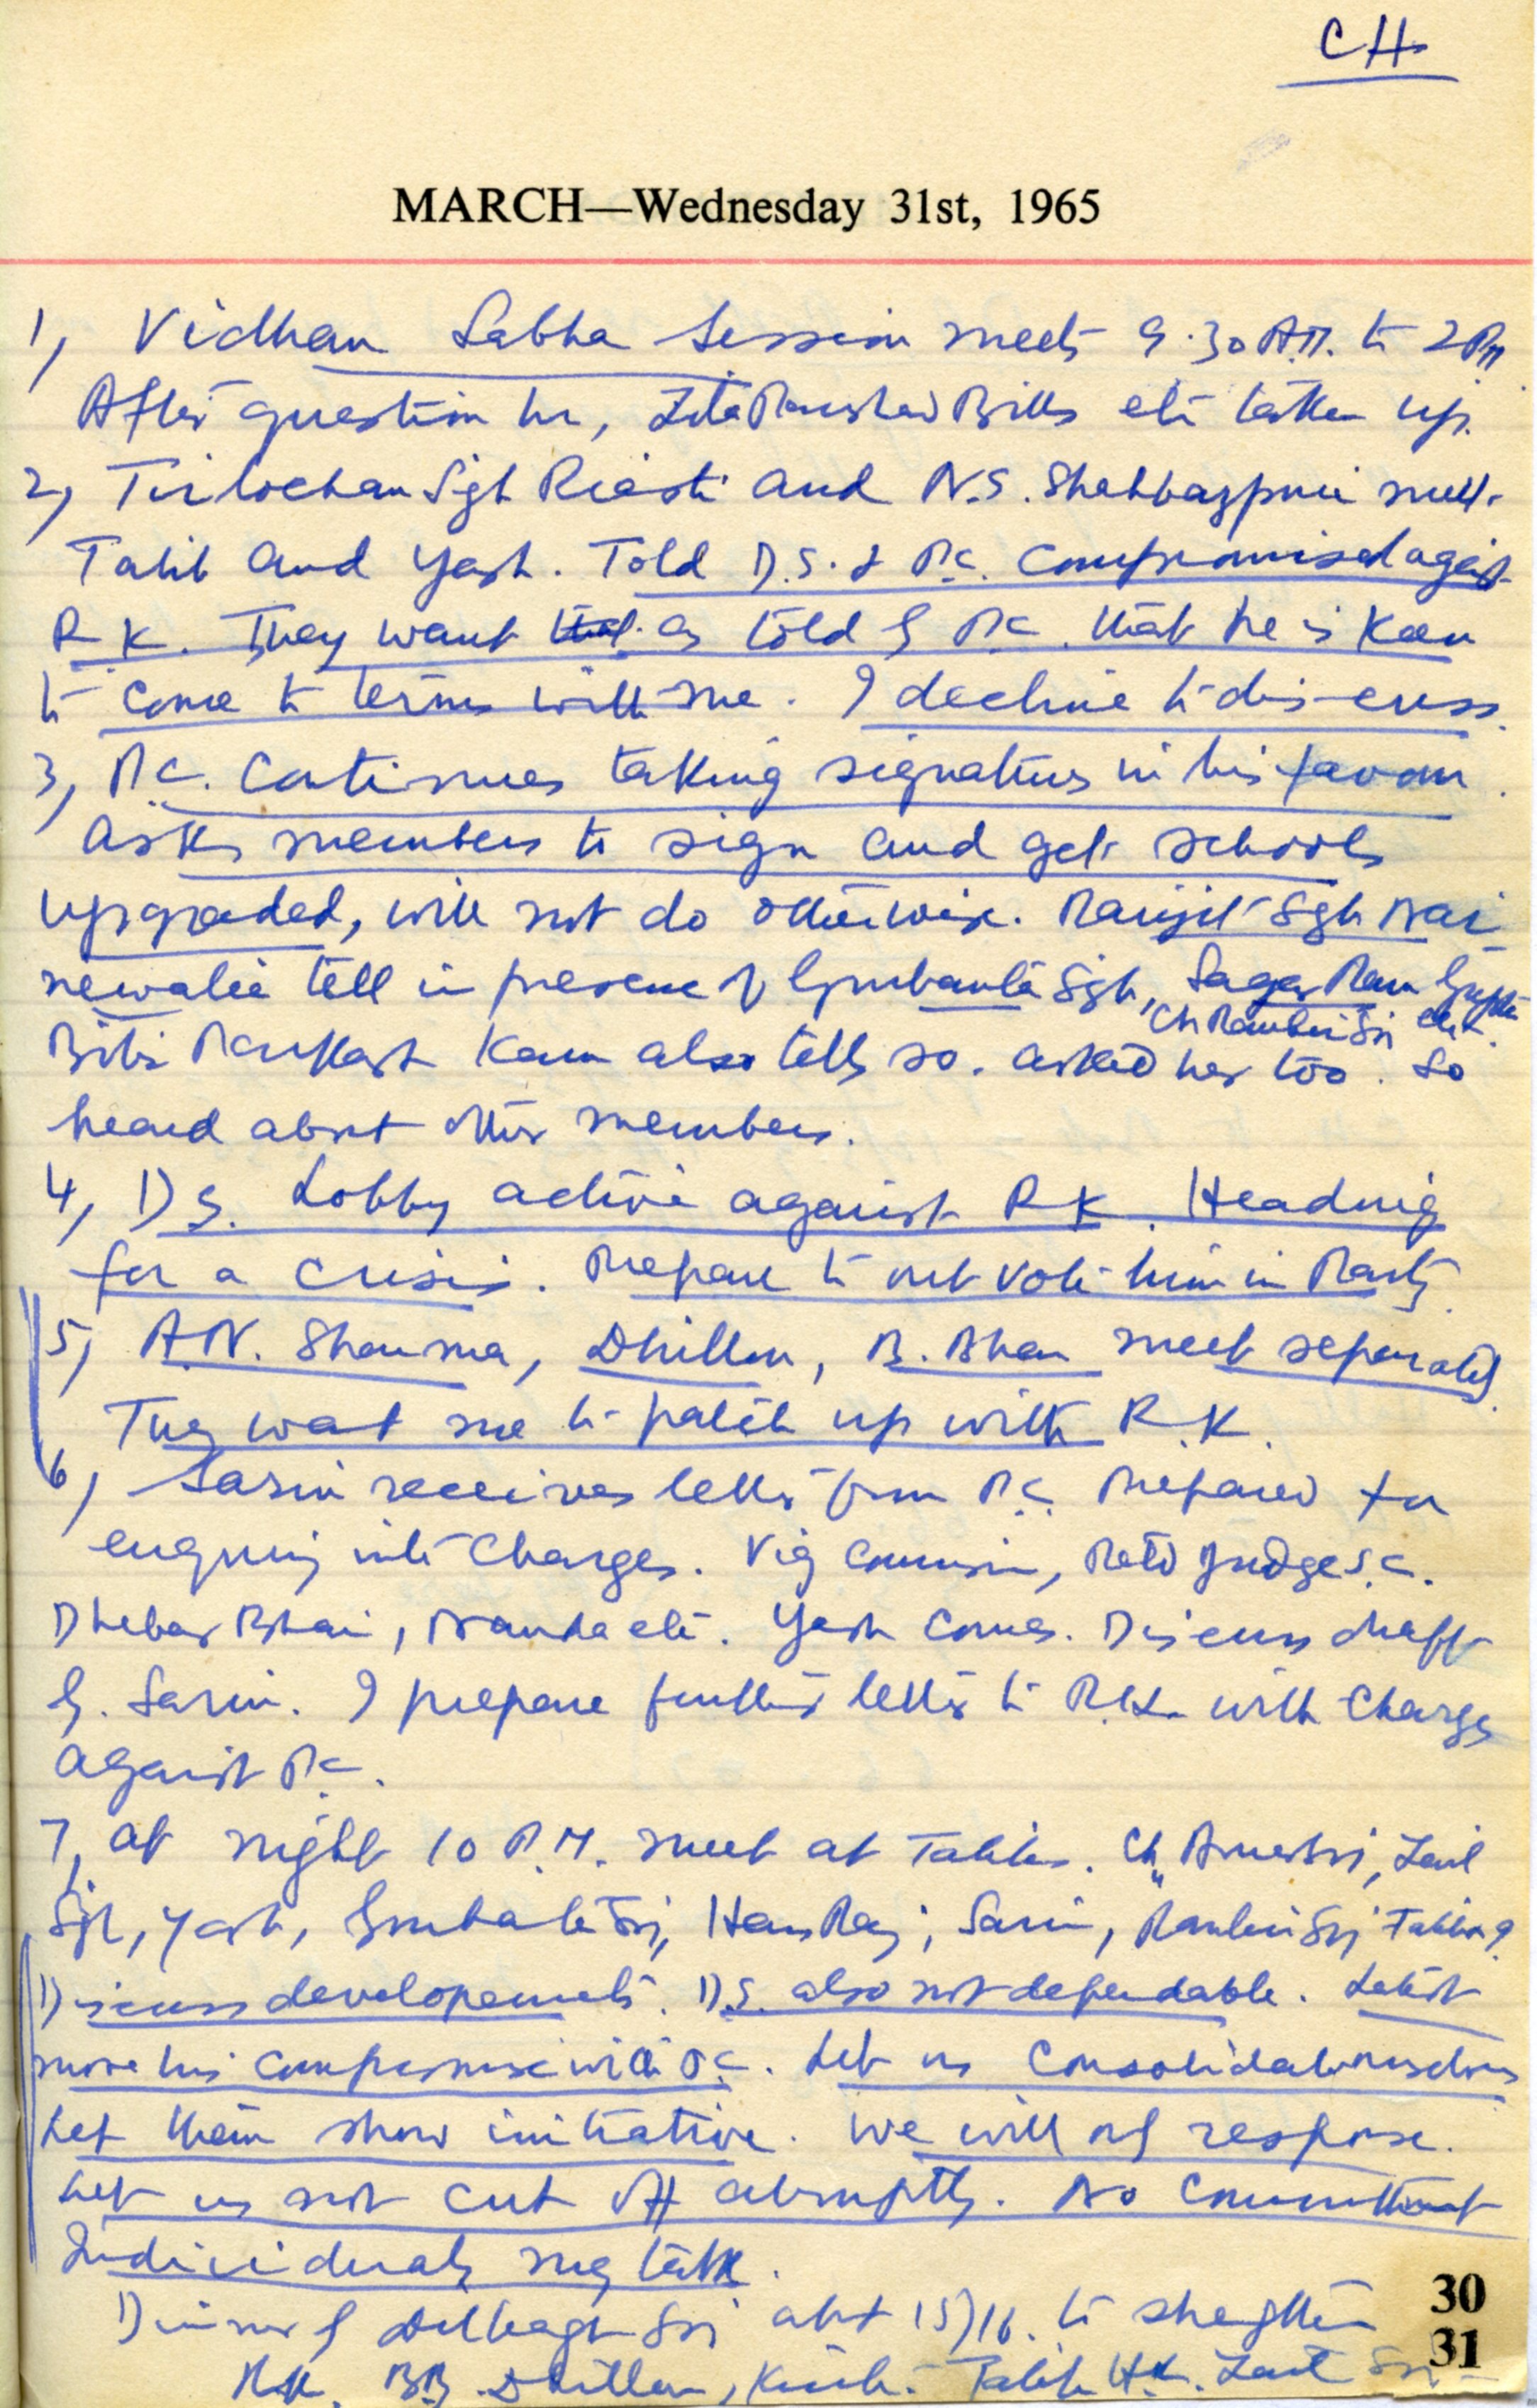 CH
MARCH—Wednesday 31st, 1965
1, Vidhan Sabha Session meets 9.30 A.M. to 2 PM
After question hr, Zila Parishad Bills etc taken up.
2, Tirlochan Sgh Riasti and N.S. Shahbazpuri meet
Talib and Yash. Told D.S. & P.C. compromised agst
R K. They want as told by P.C. that he is Keen
to come to terms with me. I decline to dis-cuss.
3, P.C. Continues taking signatures in his favour.
asks members to sign and get schools
upgraded, will not do otherwise. Ranjit Sgh Nai
newalia tell in presence of Gurbanta Sgh, Sagar Ram Gupta
Ch Ranbir Sri etc.
Bibi Parkash Kaur also tells so. asked her too. So
heard about other members.
4, D S. Lobby active against R K. Heading
for a crisis. Prepare to out vote him in Party.
5, A.N. Sharma, Dhillon, B. Bhan meet separately
They want me to patch up with R.K.
6, Sarin receives letter from P.C. Prepared for
enquiry into Charges. Vig Commission, Retd Judge S.C.
Dhebar Bhai, Nanda etc. Yash comes. Discuss draft
by Sarin. I prepare further letter to R.K. with Charges
against P.C.
7, at night 10 P.M. meet at Talibs. Ch Amar Sri, Zail
Sgh, Yash, Gurbanta Sri, Hans Raj, Sarin, Ranbir Sri, Talib
Discuss developements. D.S. also not dependable. Latest
move his compromise with P.C. Let us Consolidate ourselves
Let them show initiative. We will only response.
Let us not cut off abruptly. No Commitment
Individually may talk.
Dinner by Dilbagh Sri abt 15/16. to strengthen
RK. BB. Dhillon, Talib HR. Zail Sri
30
31